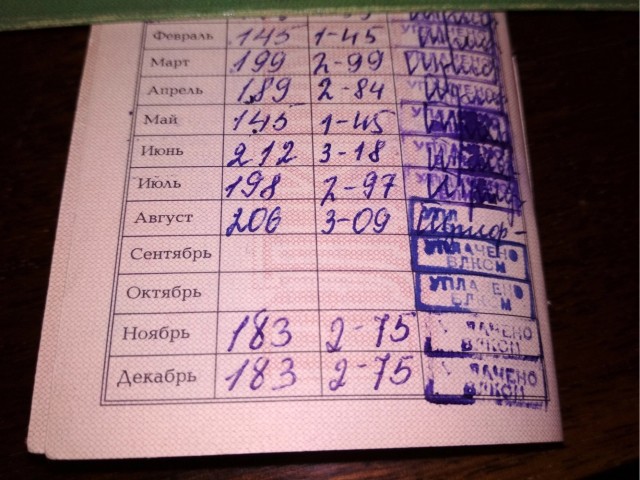 Февраль 145 1-45
Март 199 2-99
Апрель 189 2-84
Май 145 1-45
Июнь 212 3-18
Июль 198 2-97
Август 206 3-09
Сентябрь УПЛАЧЕНО
ВЛКСМ
Октябрь УПЛАЧЕНО
ВЛКСМ
Ноябрь 183 2-75 ЛАЧЕНО
ВЛКСМ
Декабрь 183 2-75 ЛАЧЕНО
ВЛКСМ